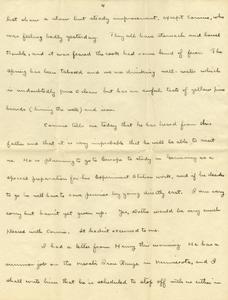 4
but show a slow but steady improvement, except Connie, who
was feeling badly yesterday. They all have stomach and bowel
trouble, and it was feared the cook had some kind of fever. The
spring has been tabooed and we are drinking well-water which
is undoubtedly pure & clean but has an awful taste of yellow pine
boards (lining the well) and iron.
Connie tells me today that he has heard from his
father and that it is very improbable that he will be able to meet
me. He is planning to go to Europe to study in Germany as a
special preparation for his Experiment Station work, and if he decides
to go he will have to save pennies by going directly east. I am very
sorry but haven't yet given up. Yes, Dollie would be very much
pleased with Connie. It hadn't occurred to me.
I had a letter from Henry this morning. He has a
summer job on the Pine Range in Minnesota, and I
shall write him that he is scheduled to stop off with us either in